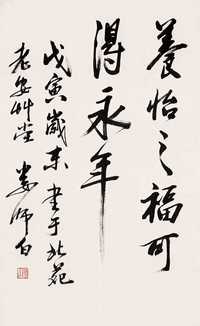 養怡之福可
得永年
戊寅歲末書于北苑
老安艸堂 婁師白